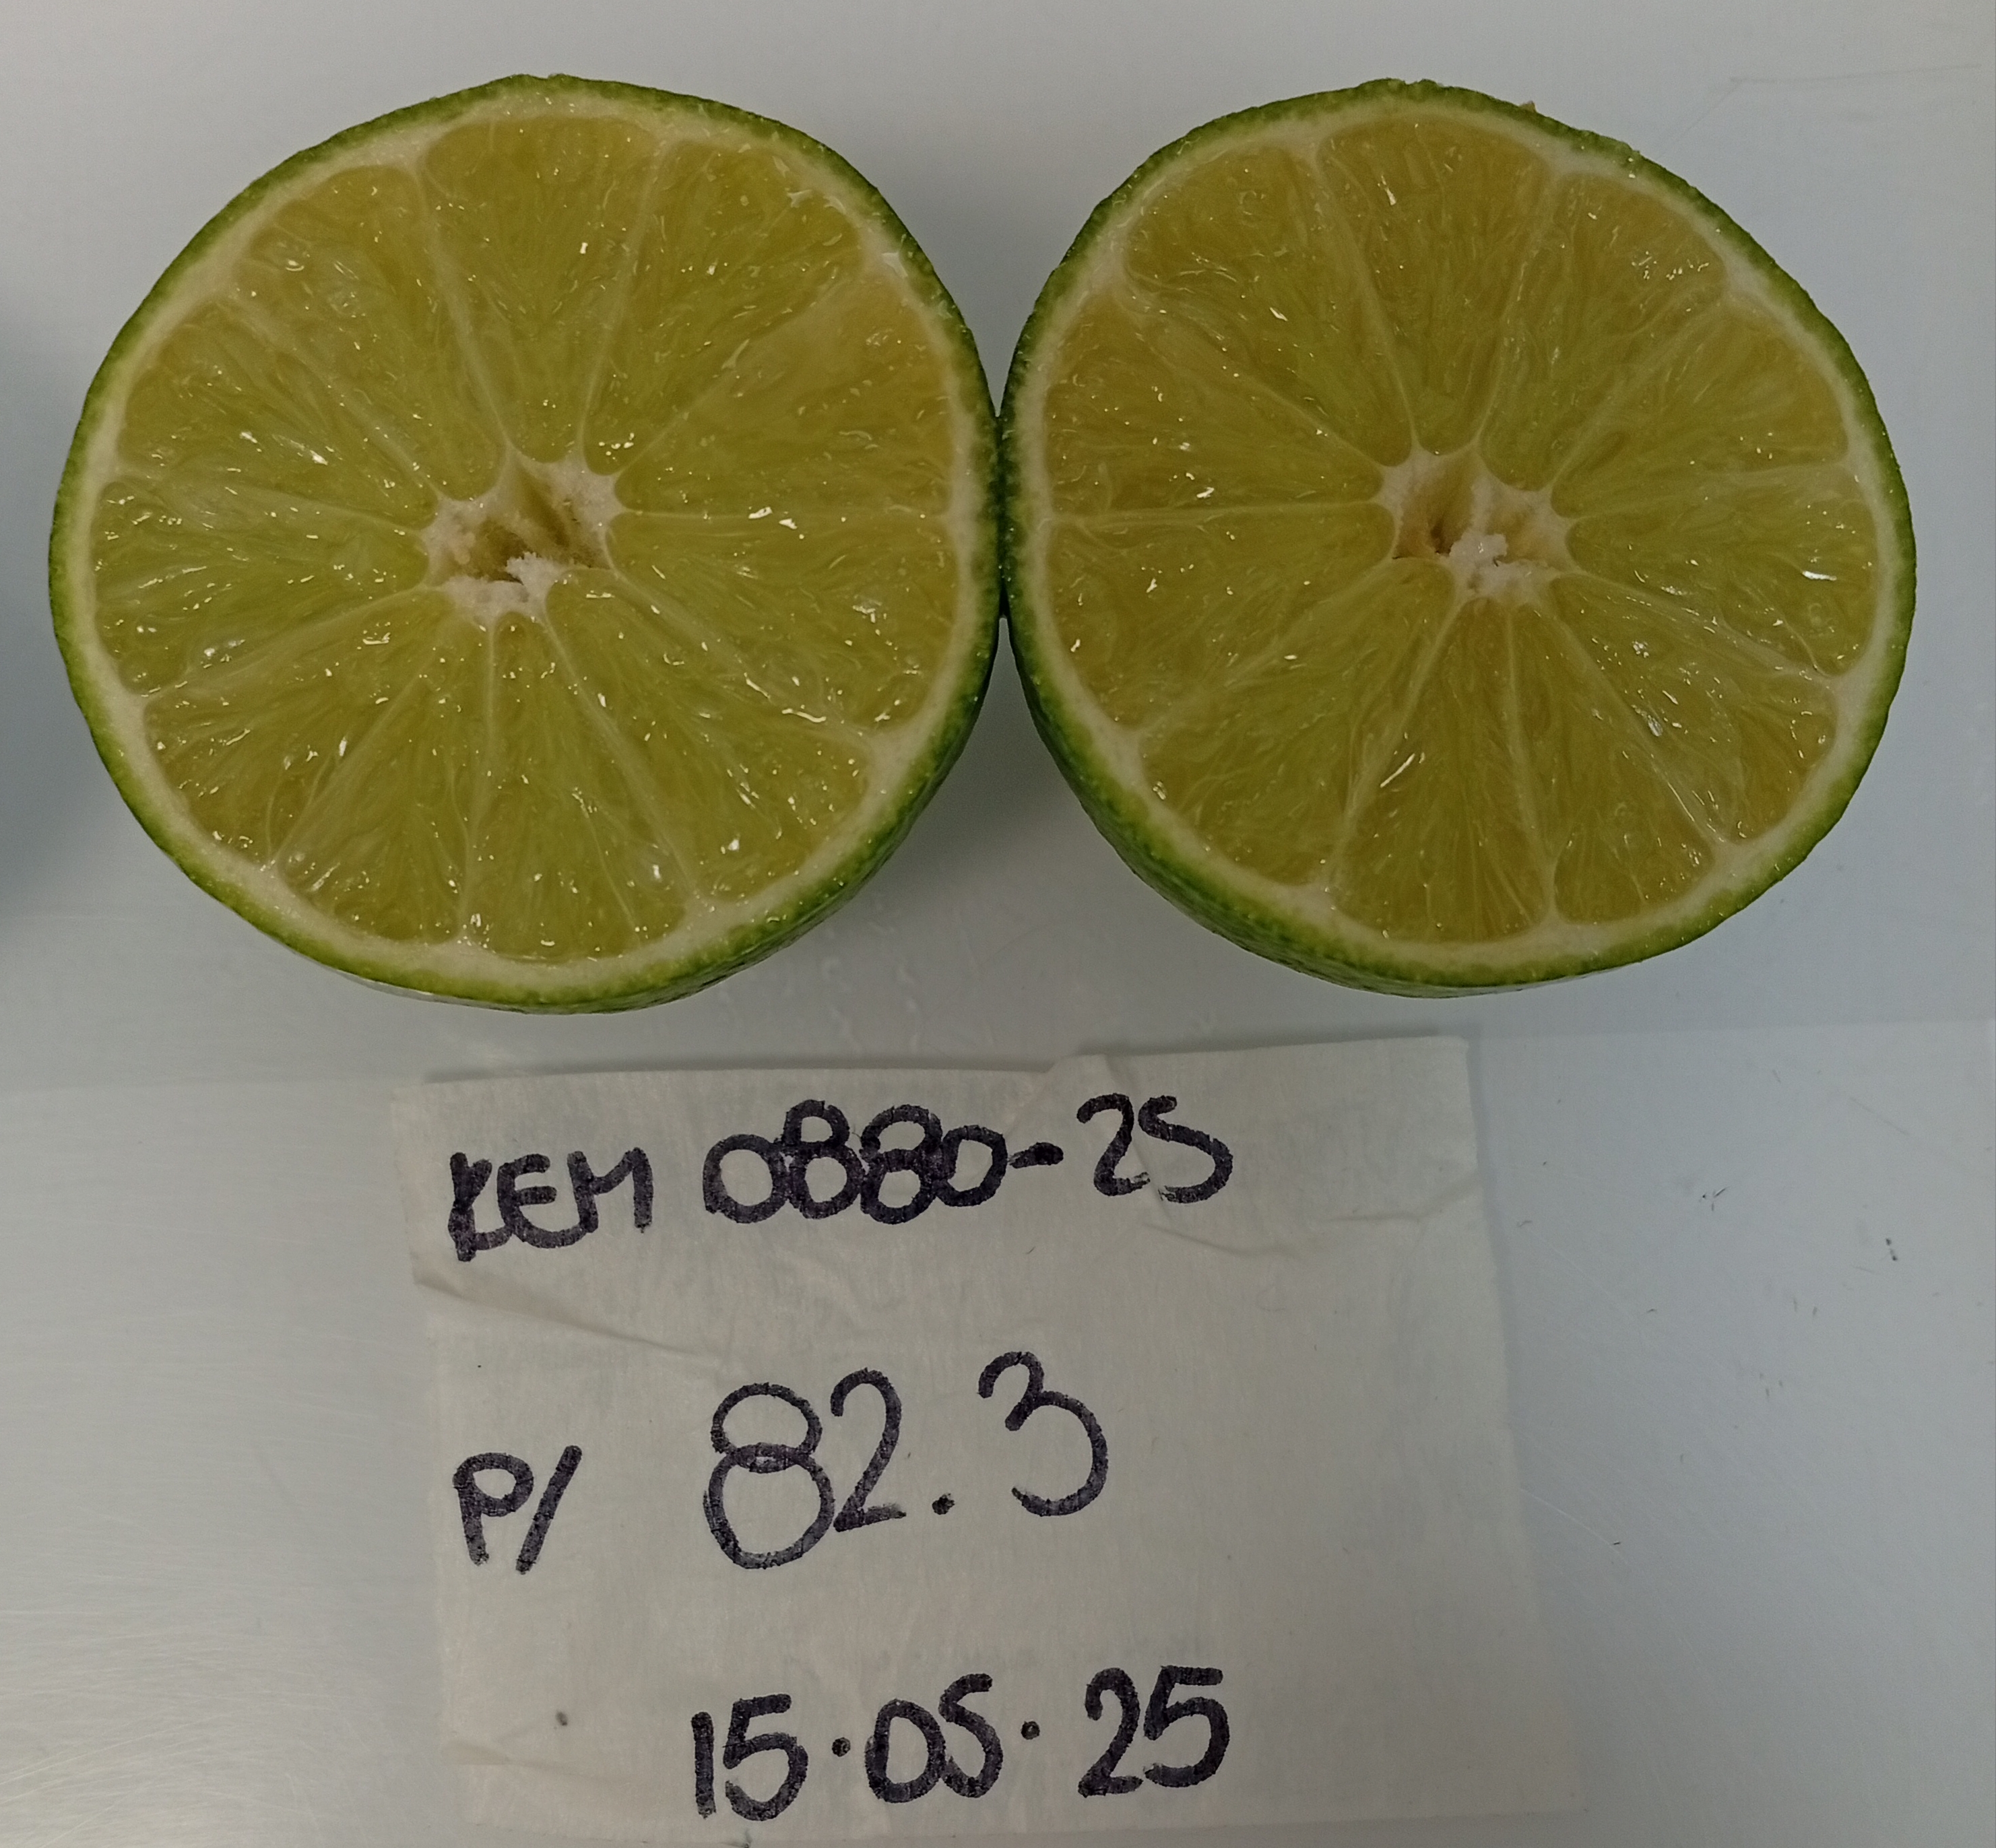 KEM 0880-25
P/ 82.3
15.05.25